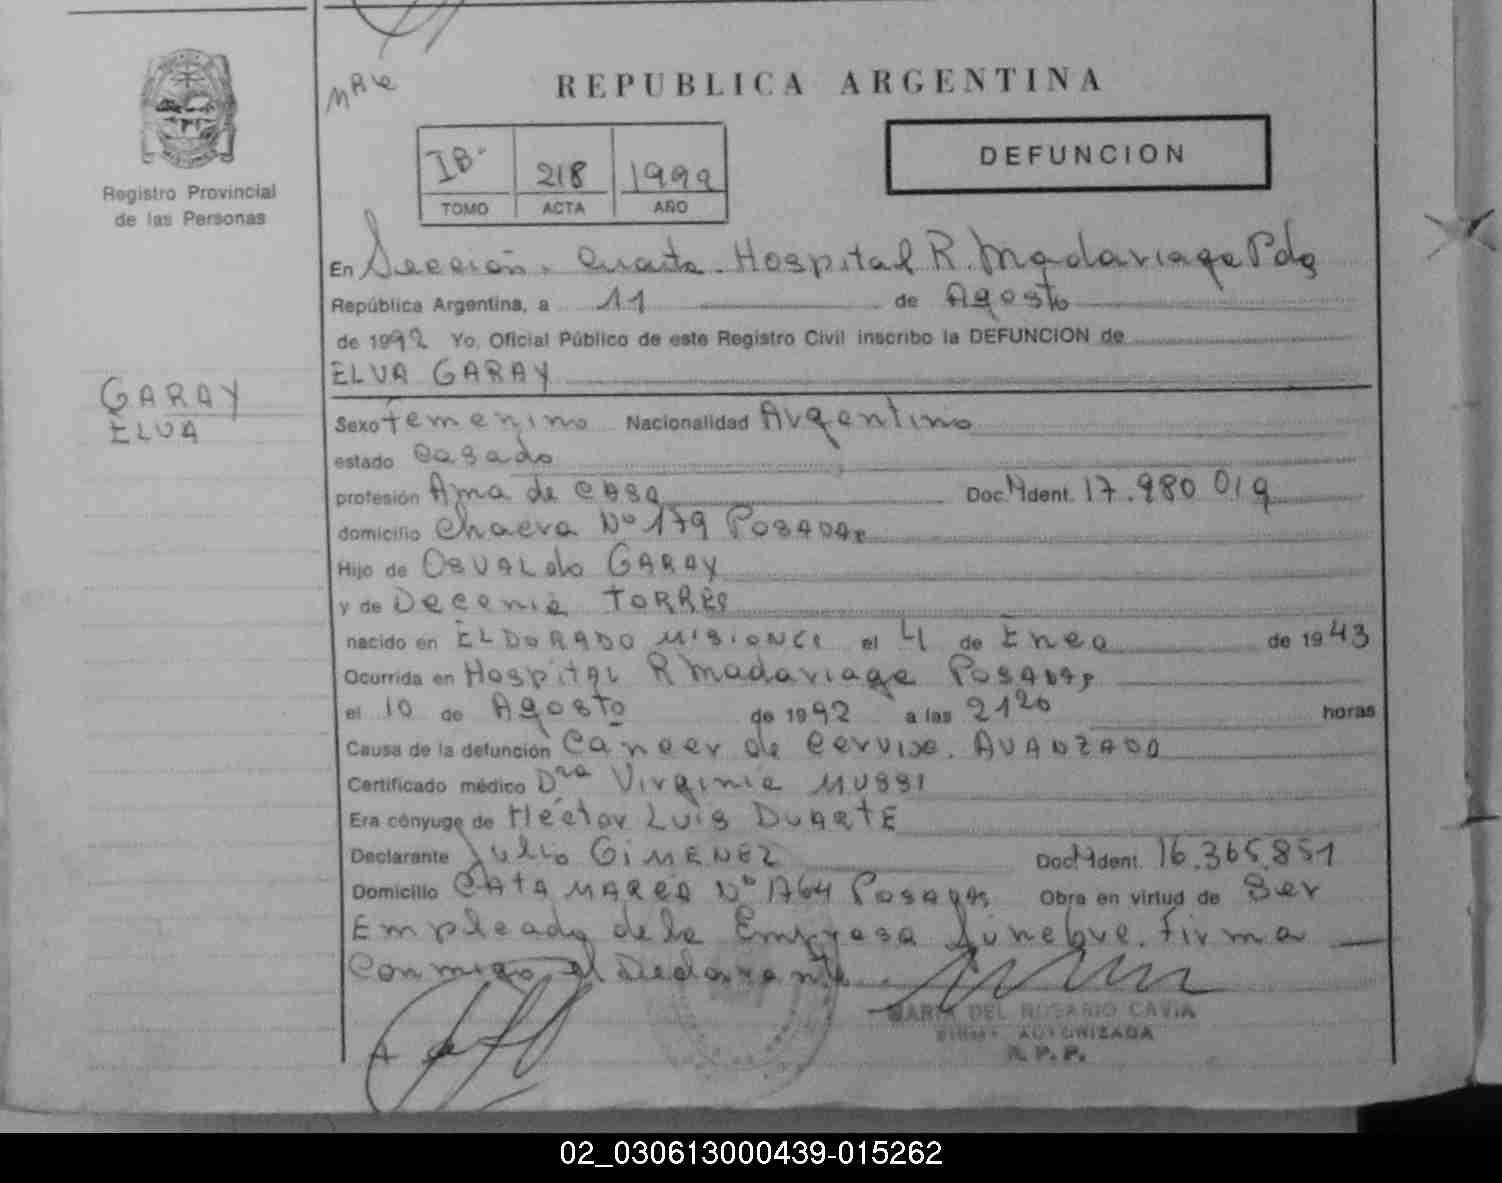 REPUBLICA ARGENTINA
DEFUNCION
Registro Provincial
de las Personas
IB. 218 1992
TOMO ACTA AÑO
En Sección Cuarta Hospital R. Madariaga Pdas
República Argentina, a 11 de Agosto
de 1992 Yo, Oficial Público de este Registro Civil inscribo la DEFUNCION de
ELVA GARAY
GARAY
ELVA
Sexo Femenino Nacionalidad Argentina
estado Casado
profesión Ama de CASA Doc. Ident. 17.980 019
domicilio Nº 179 POSADAS
Hijo de OSVALdo GARAY
y de TORRES
nacido en ELDORADO MISIONES el 4 de Eneo de 1943
Ocurrida en Hospital R Madariaga POSADAS
el 10 de Agosto de 1992 a las 2120 horas
Causa de la defunción Cancer de Cervix. AVANZADO
Certificado médico Dra Virginia MUSSI
Era cónyuge de Héctor LUIS DUARTE
Declarante Julio GIMENEZ Doc. Ident. 16.365.851
Domicilio CATAMARCA Nº 1764 POSADAS Obra en virtud de Ser
Empleado de la Empresa fúnebre. Firma
Conmigo el Declarante
MARIA DEL ROSARIO CAVIA
FIRMA AUTORIZADA
R. P. P.
02_030613000439-015262